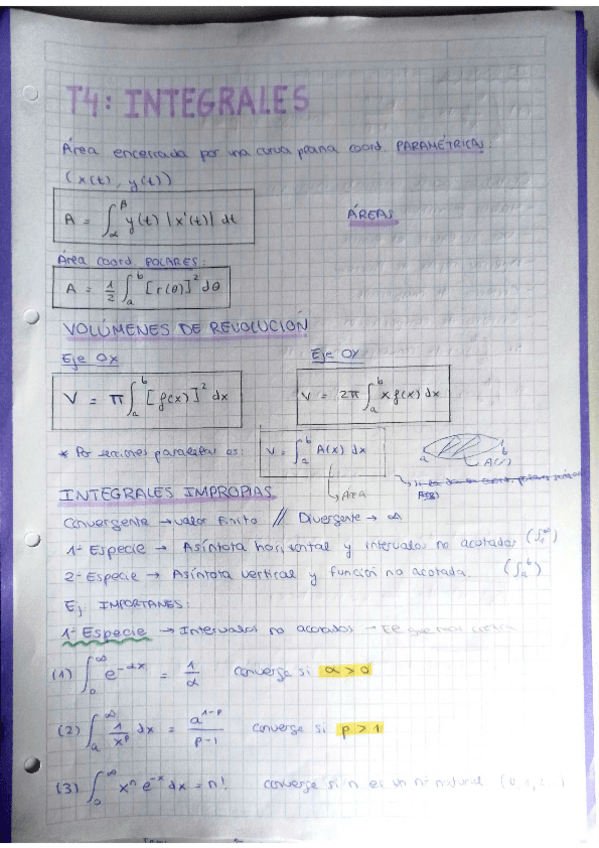 T4: INTEGRALES
Área encerrada por una curva plana coord. PARAMÉTRICAS:
(x(t), y(t))
A = ∫_α^β y(t) |x'(t)| dt
ÁREAS
Área coord. POLARES:
A = 1/2 ∫_a^b [r(θ)]² dθ
VOLÚMENES DE REVOLUCIÓN
Eje OX
V = π ∫_a^b [f(x)]² dx
Eje OY
V = 2π ∫_a^b x f(x) dx
* Por secciones paralelas es: V = ∫_a^b A(x) dx
Área
a b A(x)
INTEGRALES IMPROPIAS
Convergente → valor finito // Divergente → ∞
1ª Especie → Asíntota horizontal y intervalos no acotados (∫_1^∞)
2ª Especie → Asíntota vertical y función no acotada. (∫_a^b)
Ej IMPORTANES:
1ª Especie → Intervalos no acotados →
(1) ∫_0^∞ e^-αx = 1/α converge si α > 0
(2) ∫_a^∞ 1/x^p dx = a^1-p / p-1 converge si p > 1
(3) ∫_0^∞ x^n e^-x dx = n! converge si n es un nº natural